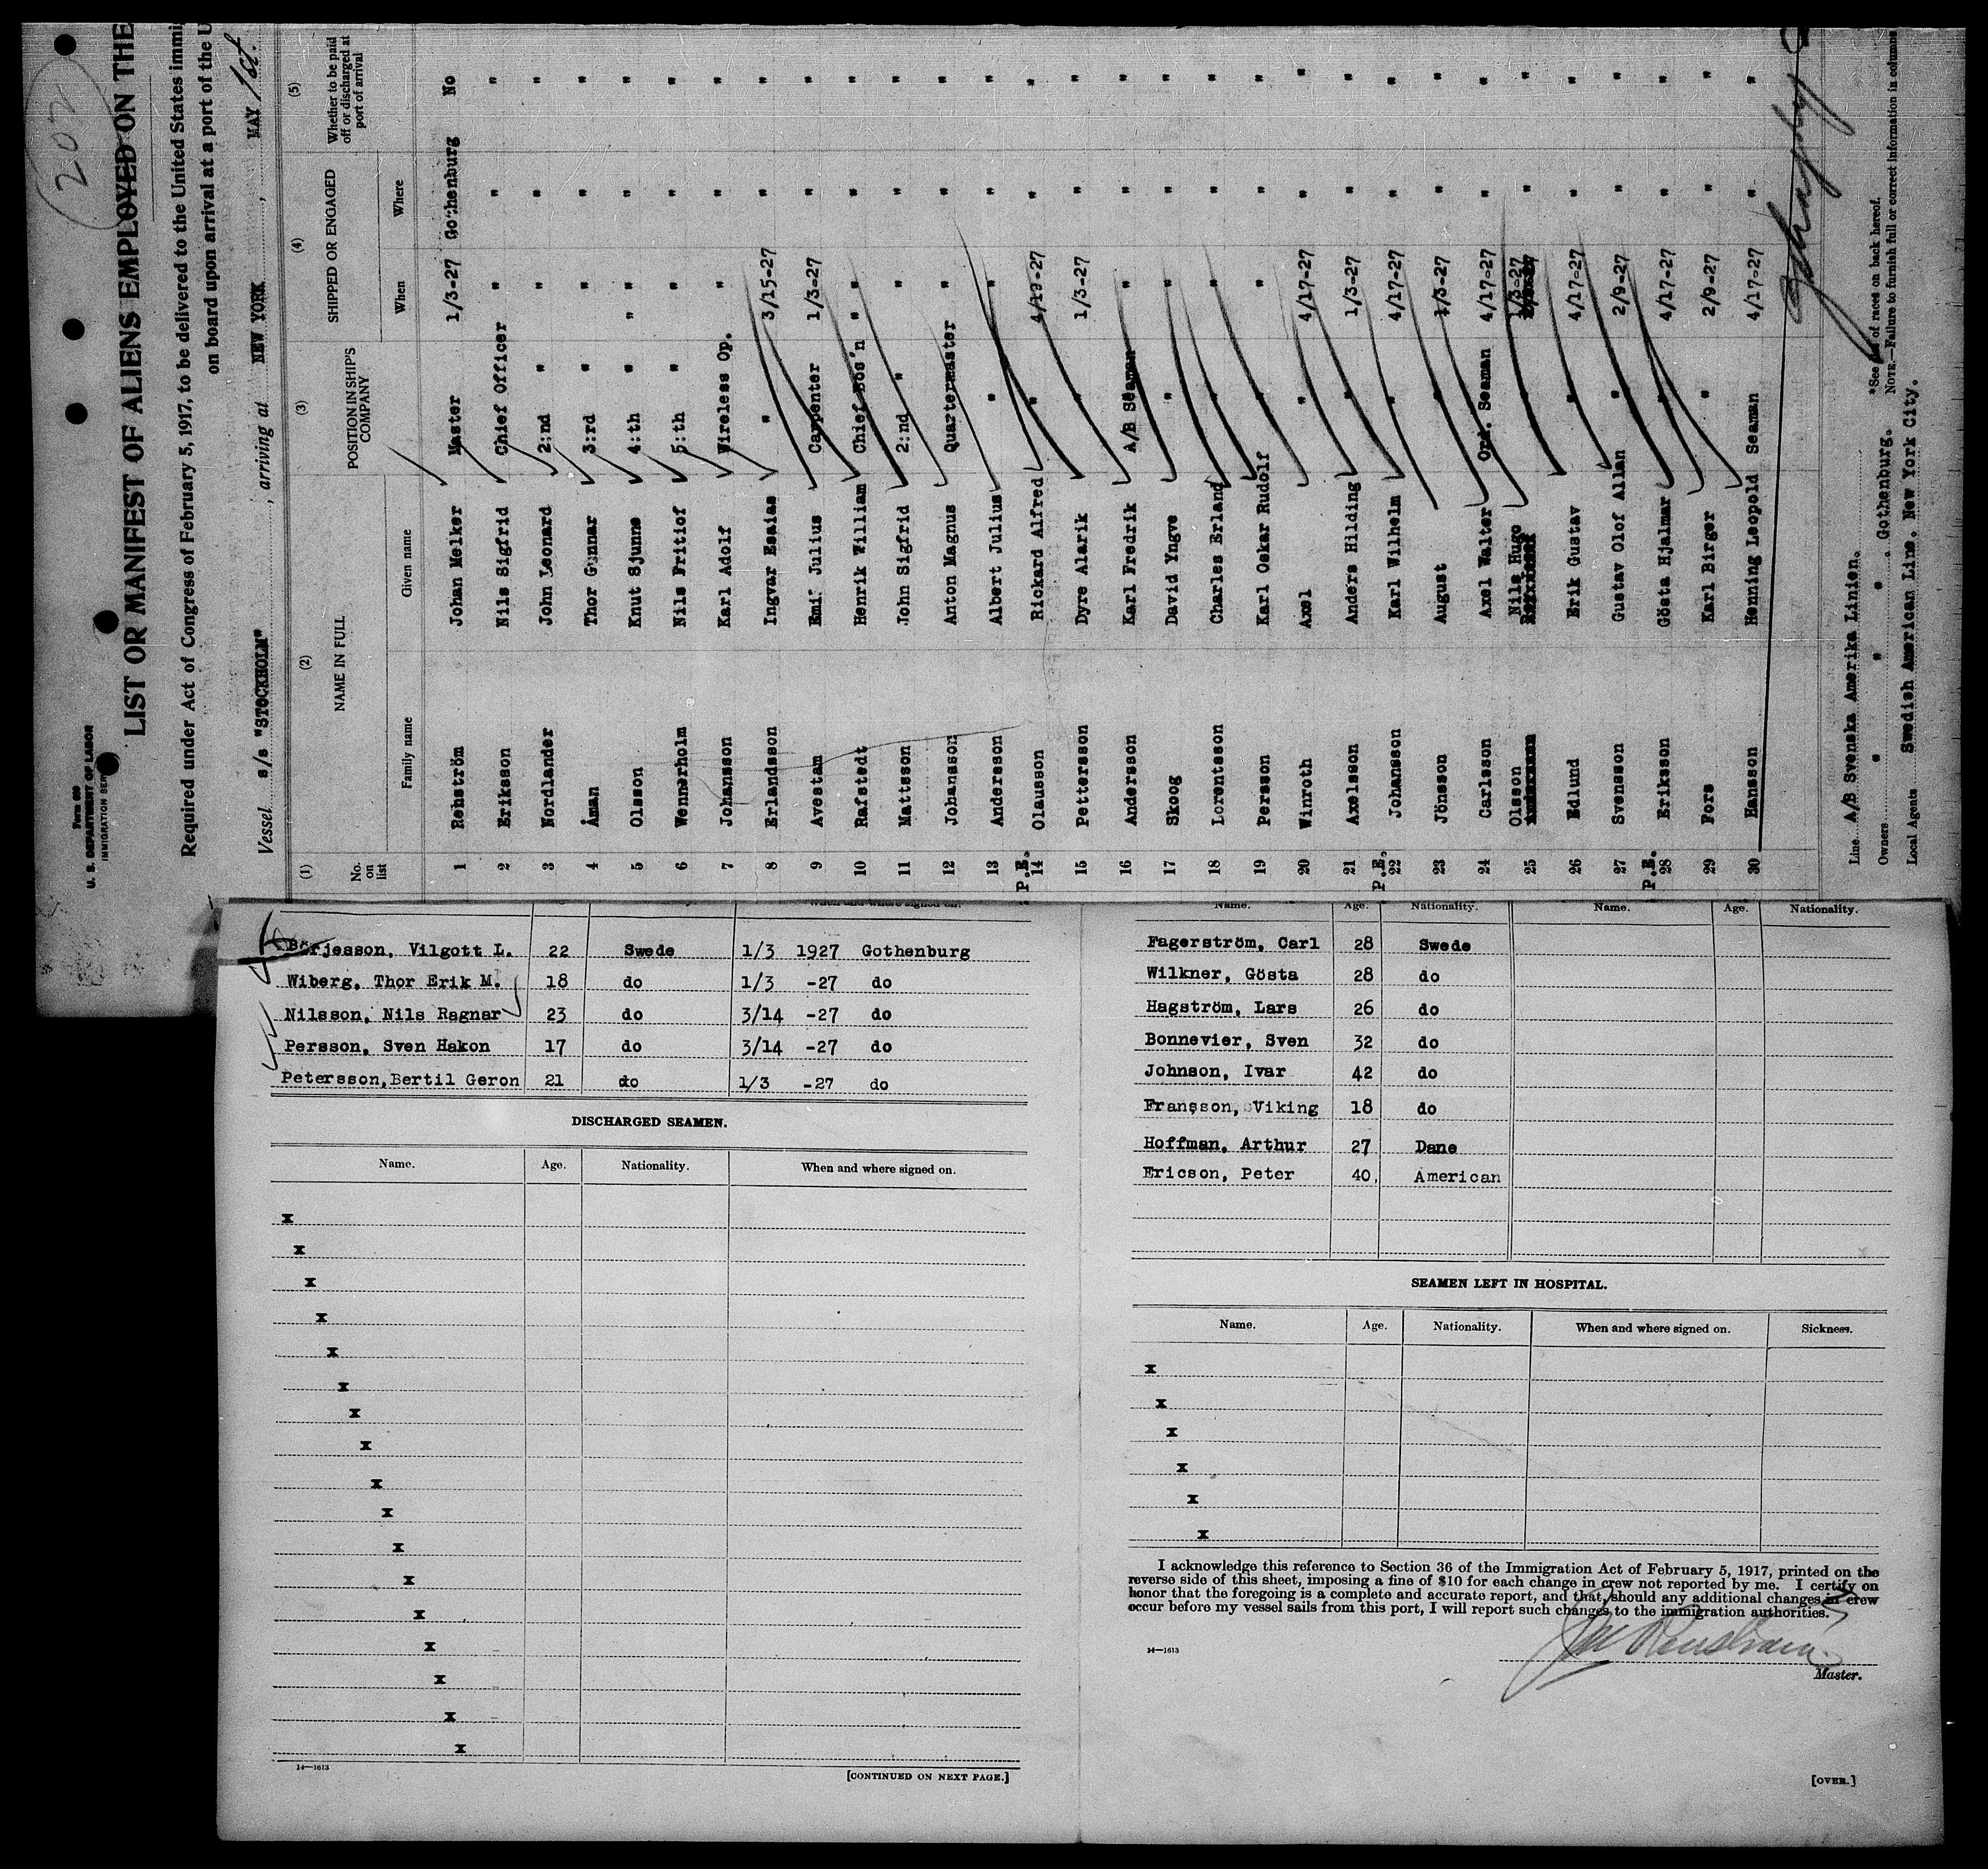 202
Form 689
U. S. DEPARTMENT OF LABOR
IMMIGRATION SER
LIST OR MANIFEST OF ALIENS EMPLOYED ON THE
Required under Act of Congress of February 5, 1917, to be delivered to the United States immi
on board upon arrival at a port of the U
Vessel s/s "STOCKHOLM", arriving at NEW YORK, MAY 1st.
(1) (2) (3) (4) (5)
No. on list NAME IN FULL POSITION IN SHIP'S COMPANY SHIPPED OR ENGAGED Whether to be paid off or discharged at port of arrival
Family name Given name When Where
1 Rehström Johan Melker Master 1/3-27 Gothenburg No
2 Eriksson Nils Sigfrid Chief Officer " " "
3 Nordlander John Leonard 2:nd " " " "
4 Åman Thor Gunnar 3:rd " " " "
5 Olsson Knut Sjunne 4:th " " " "
6 Wennerholm Nils Fritiof 5:th " " " "
7 Johansson Karl Adolf Wireless Op. " " "
8 Erlandsson Ingvar Esaias " 3/15-27 " "
9 Avestam Emil Julius Carpenter 1/3-27 " "
10 Rafstedt Henrik William Chief Bos'n " " "
11 Mattsson John Sigfrid 2:nd " " " "
12 Johansson Anton Magnus Quartermaster " " "
13 Andersson Albert Julius " " " "
P.E. 14 Olausson Rickard Alfred " 4/19-27 " "
15 Pettersson Dyre Alarik " 1/3-27 " "
16 Andersson Karl Fredrik A/B Seaman " " "
17 Skoog David Yngve " " " "
18 Lorentsson Charles Erland " " " "
19 Persson Karl Oskar Rudolf " " " "
20 Winroth Axel " 4/17-27 " "
21 Axelsson Anders Hilding " 1/3-27 " "
P.E. 22 Johansson Karl Wilhelm " 4/17-27 " "
23 Jönsson August " 1/3-27 " "
24 Carlsson Axel Walter Ord. Seaman 4/17-27 " "
25 Olsson Nils Hugo " 1/3-27 " "
26 Edlund Erik Gustav " 4/17-27 " "
27 Svensson Gustav Olof Allan " 2/9-27 " "
P.E. 28 Eriksson Gösta Hjalmar " 4/17-27 " "
29 Fors Karl Birger " 2/9-27 " "
30 Hansson Henning Leopold Seaman 4/17-27 " "
Line A/B Svenska Amerika Linien.
Owners " " " Gothenburg.
Local Agents Swedish American Line. New York City.
*See list of races on back hereof.
NOTE.—Failure to furnish full or correct information in columns
When and where signed on.
Börjesson, Vilgott L. 22 Swede 1/3 1927 Gothenburg
Wiberg, Thor Erik M. 18 do 1/3 -27 do
Nilsson, Nils Ragnar 23 do 3/14 -27 do
Persson, Sven Hakon 17 do 3/14 -27 do
Petersson, Bertil Geron 21 do 1/3 -27 do
DISCHARGED SEAMEN.
Name. Age. Nationality. When and where signed on.
x
x
x
x
x
x
x
x
x
x
x
x
x
x
x
x
x
14—1613
[CONTINUED ON NEXT PAGE.]
Name. Age. Nationality. Name. Age. Nationality.
Fagerström, Carl 28 Swede
Wilkner, Gösta 28 do
Hagström, Lars 26 do
Bonnevier, Sven 32 do
Johnson, Ivar 42 do
Fransson, Viking 18 do
Hoffman, Arthur 27 Dane
Ericson, Peter 40, American
SEAMEN LEFT IN HOSPITAL.
Name. Age. Nationality. When and where signed on. Sickness.
x
x
x
x
x
x
I acknowledge this reference to Section 36 of the Immigration Act of February 5, 1917, printed on the
reverse side of this sheet, imposing a fine of $10 for each change in crew not reported by me. I certify on
honor that the foregoing is a complete and accurate report, and that, should any additional changes in crew
occur before my vessel sails from this port, I will report such changes to the immigration authorities.
14—1613
Master.
[OVER.]